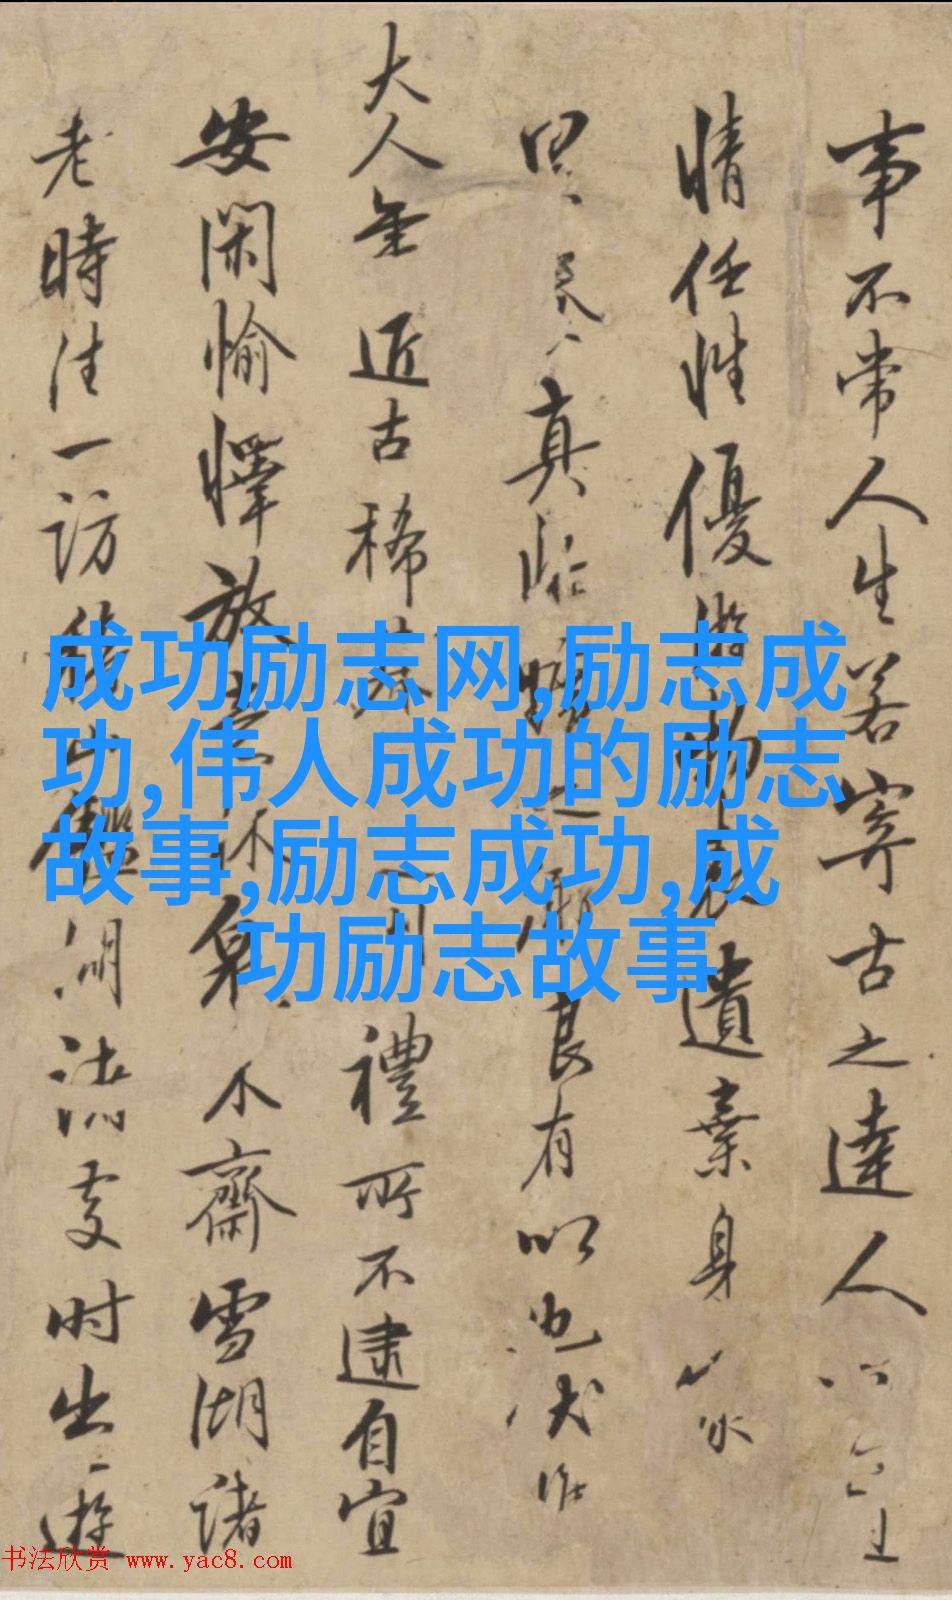 事不常人生若寄古之達人
情任性優游物表遺棄身
真有以也伏惟
大人年近古稀禮所不逮自宜
安閑愉懌放意林泉木齋雪湖諸
老時往一訪稽山鑑湖諸處时出一遊
成功励志网,励志成
功,伟人成功的励志
故事,励志成功,成
功励志故事
书法欣赏 www.yac8.com